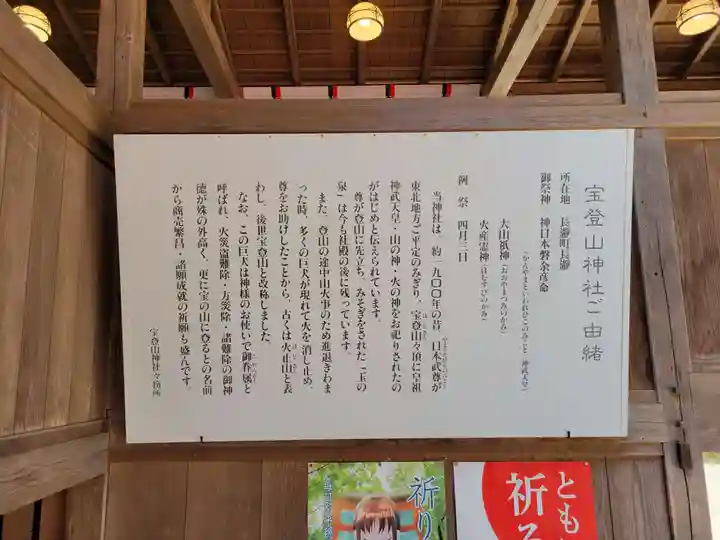 宝登山神社ご由緒
所在地 長瀞町長瀞
御祭神 神日本磐余彦命
(かんやまといわれひこのみこと 神武天皇)
大山祇神(おおやまづみのかみ)
火産霊神(ほむすびのかみ)
例祭 四月三日
当神社は、約一九〇〇年の昔、日本武尊が
東北地方ご平定のみぎり、宝登山々頂に皇祖
神武天皇・山の神・火の神をお祀りされたの
がはじめと伝えられています。
尊が登山に先立ち、みそぎをされた「玉の
泉」は今も社殿の後に残っています。
また、登山の途中山火事のため進退きわま
った時、多くの巨犬が現れて火を消し止め、
尊をお助けしたことから、古くは火止山と表
わし、後世宝登山と改称しました。
なお、この巨犬は神様のお使いで御眷属と
呼ばれ、火災盗難除・方災除・諸難除の御神
徳が殊の外高く、更に宝の山に登るとの名前
から商売繁昌・諸願成就の祈願も盛んです。
宝登山神社々務所
祈り
とも
祈